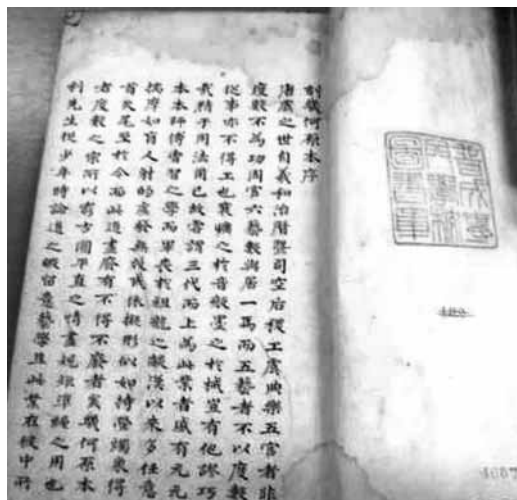 刻幾何原本序
唐虞之世自羲和治曆暨司空后稷工虞典樂五官者非
度數不為功周官六藝數與居一焉而五藝者不以度數
從事亦不得工也襄曠之於音般墨之於械豈有他謬巧
哉精于用法爾已故嘗謂三代而上為此業者盛有元元
本本師傅曹習之學而畢喪於祖龍之燄漢以來多任意
揣摩如盲人射的虛發無效或依擬形似如持螢燭象得
首失尾至於今而此道盡廢有不得不廢者矣幾何原本
者度數之宗所以窮方圓平直之情盡規矩準繩之用也
利先生從少年時論道之暇留意藝學且此業在彼中所